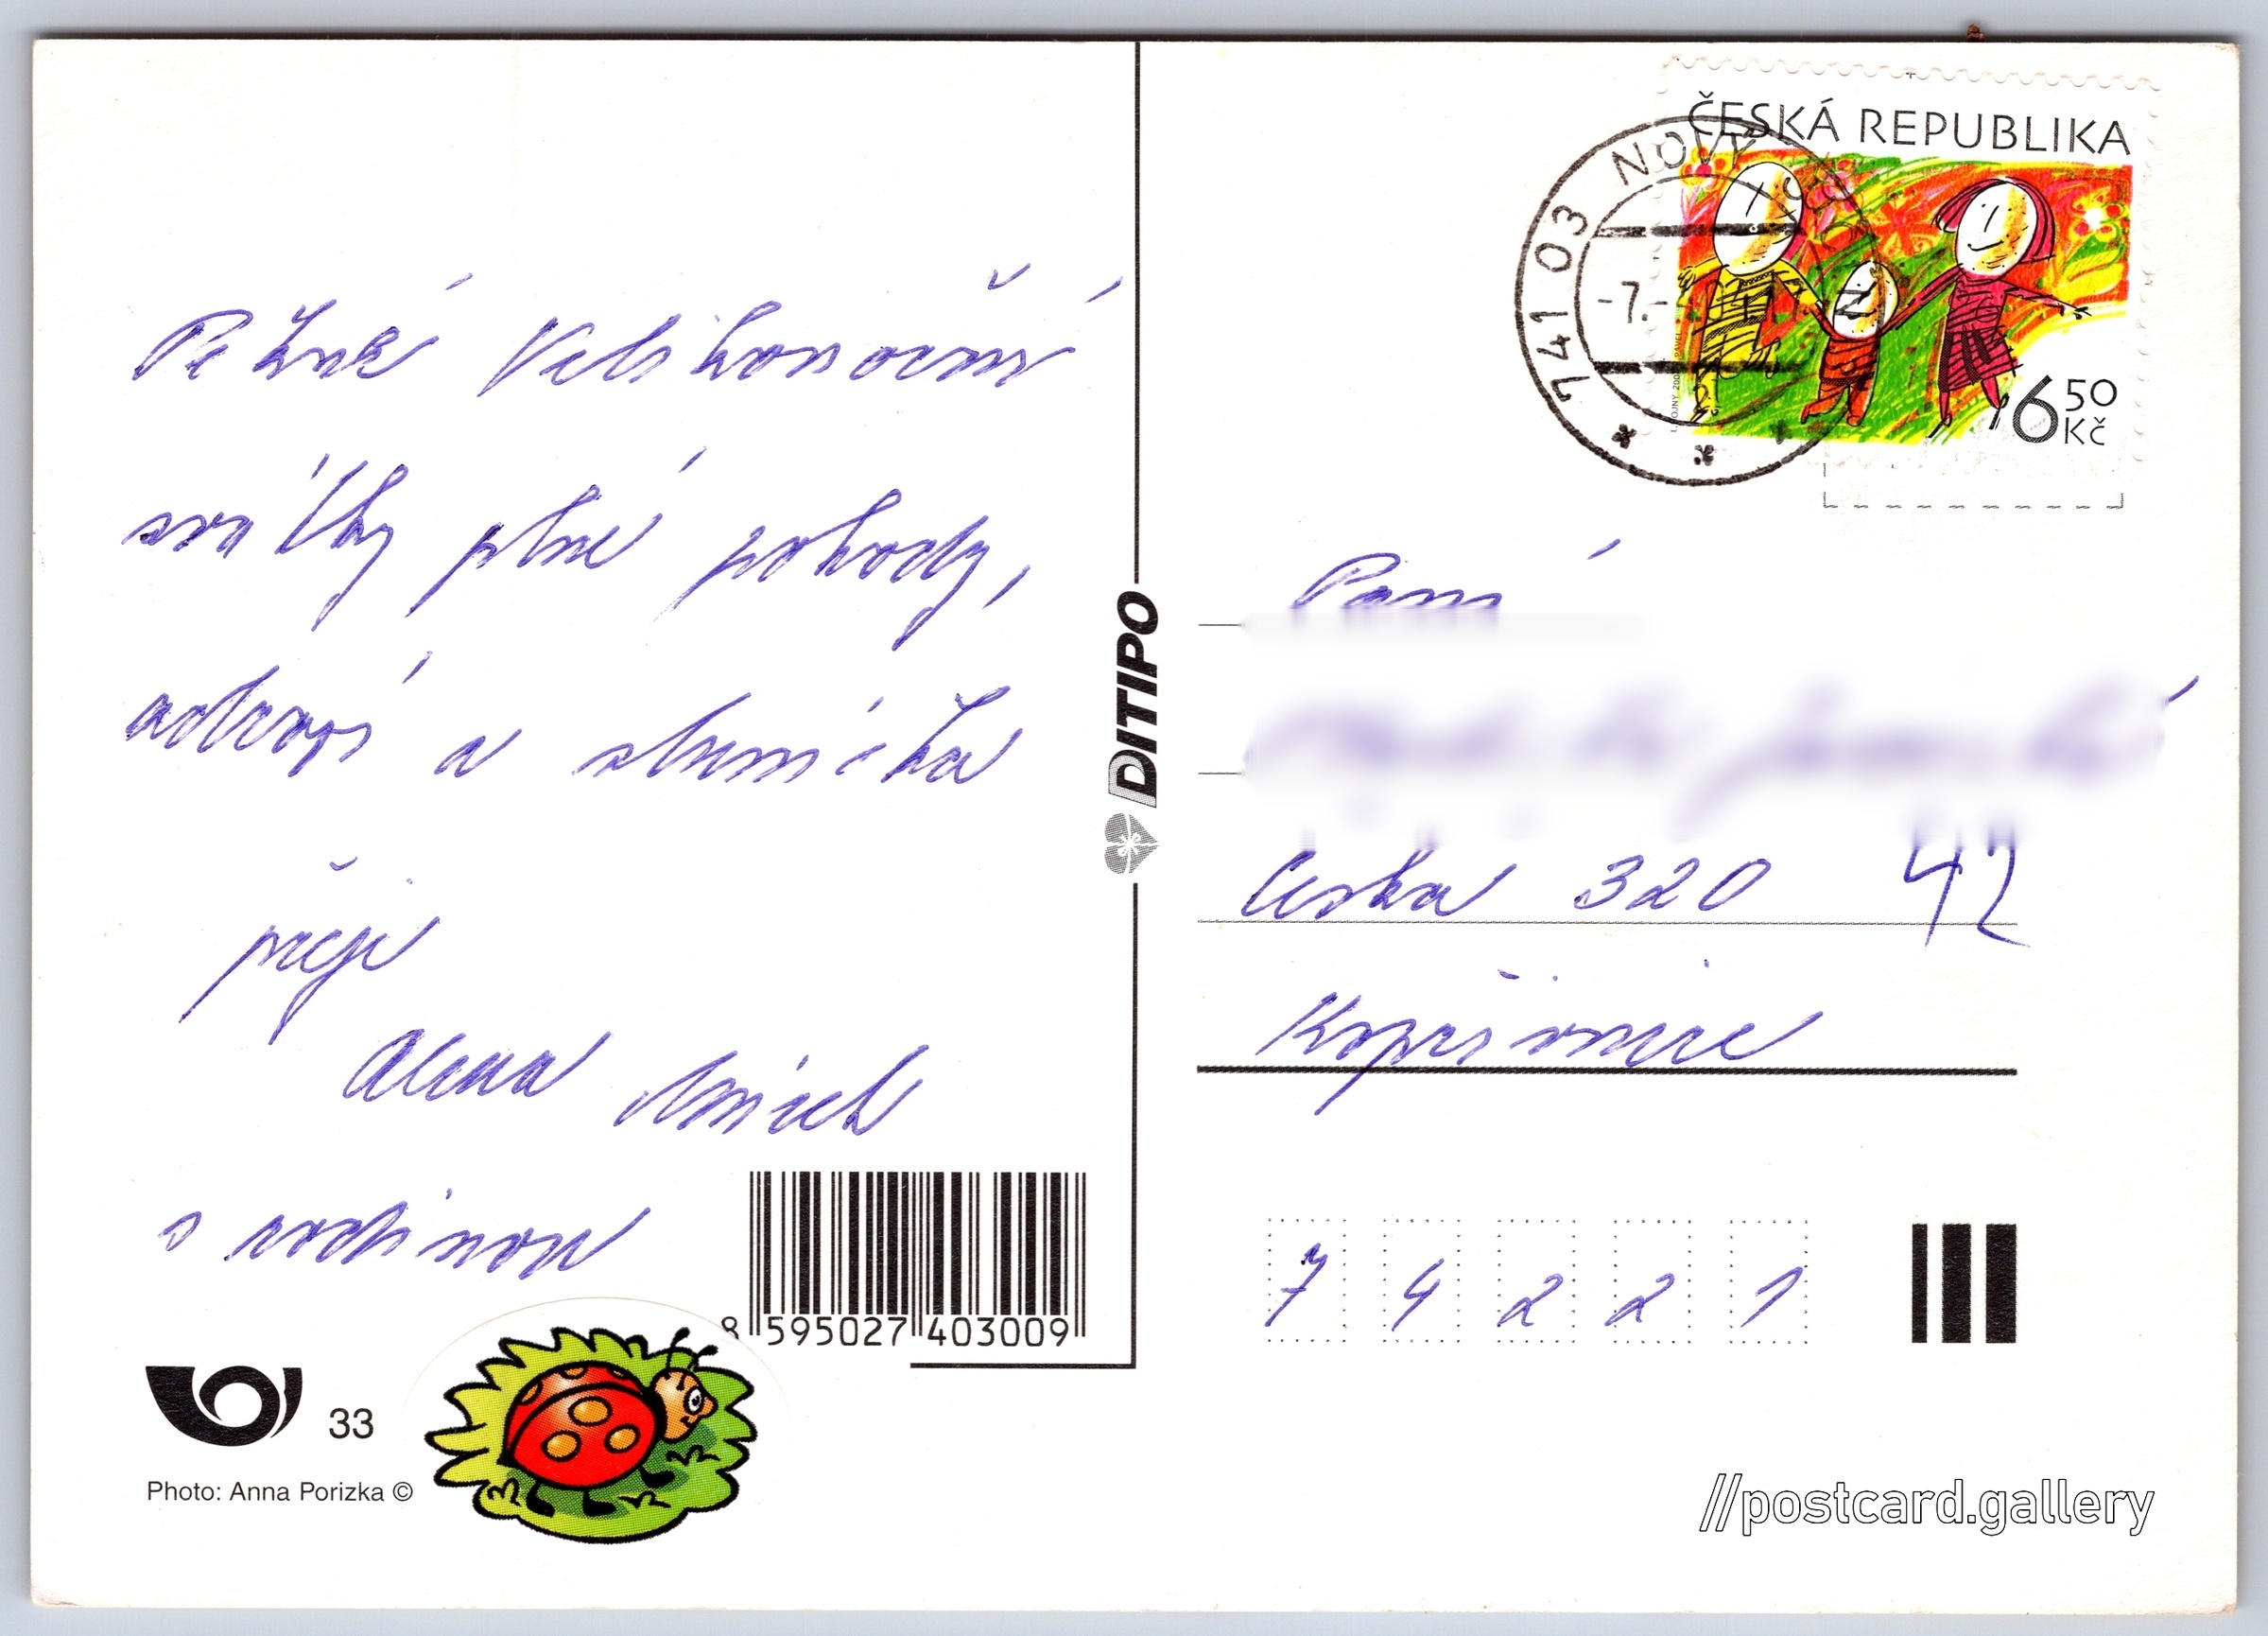 Pěkné Velikonoční
svátky plné pohody,
zdraví a sluníčka
přeje
Alena
s rodinou
8 595027 403009
33
Photo: Anna Porizka ©
DITIPO
ČESKÁ REPUBLIKA
6 50
Kč
741 03 NOVÝ
-7.-
Paní
Česká 320 42
Kopřivnice
7 4 2 2 1
//postcard.gallery